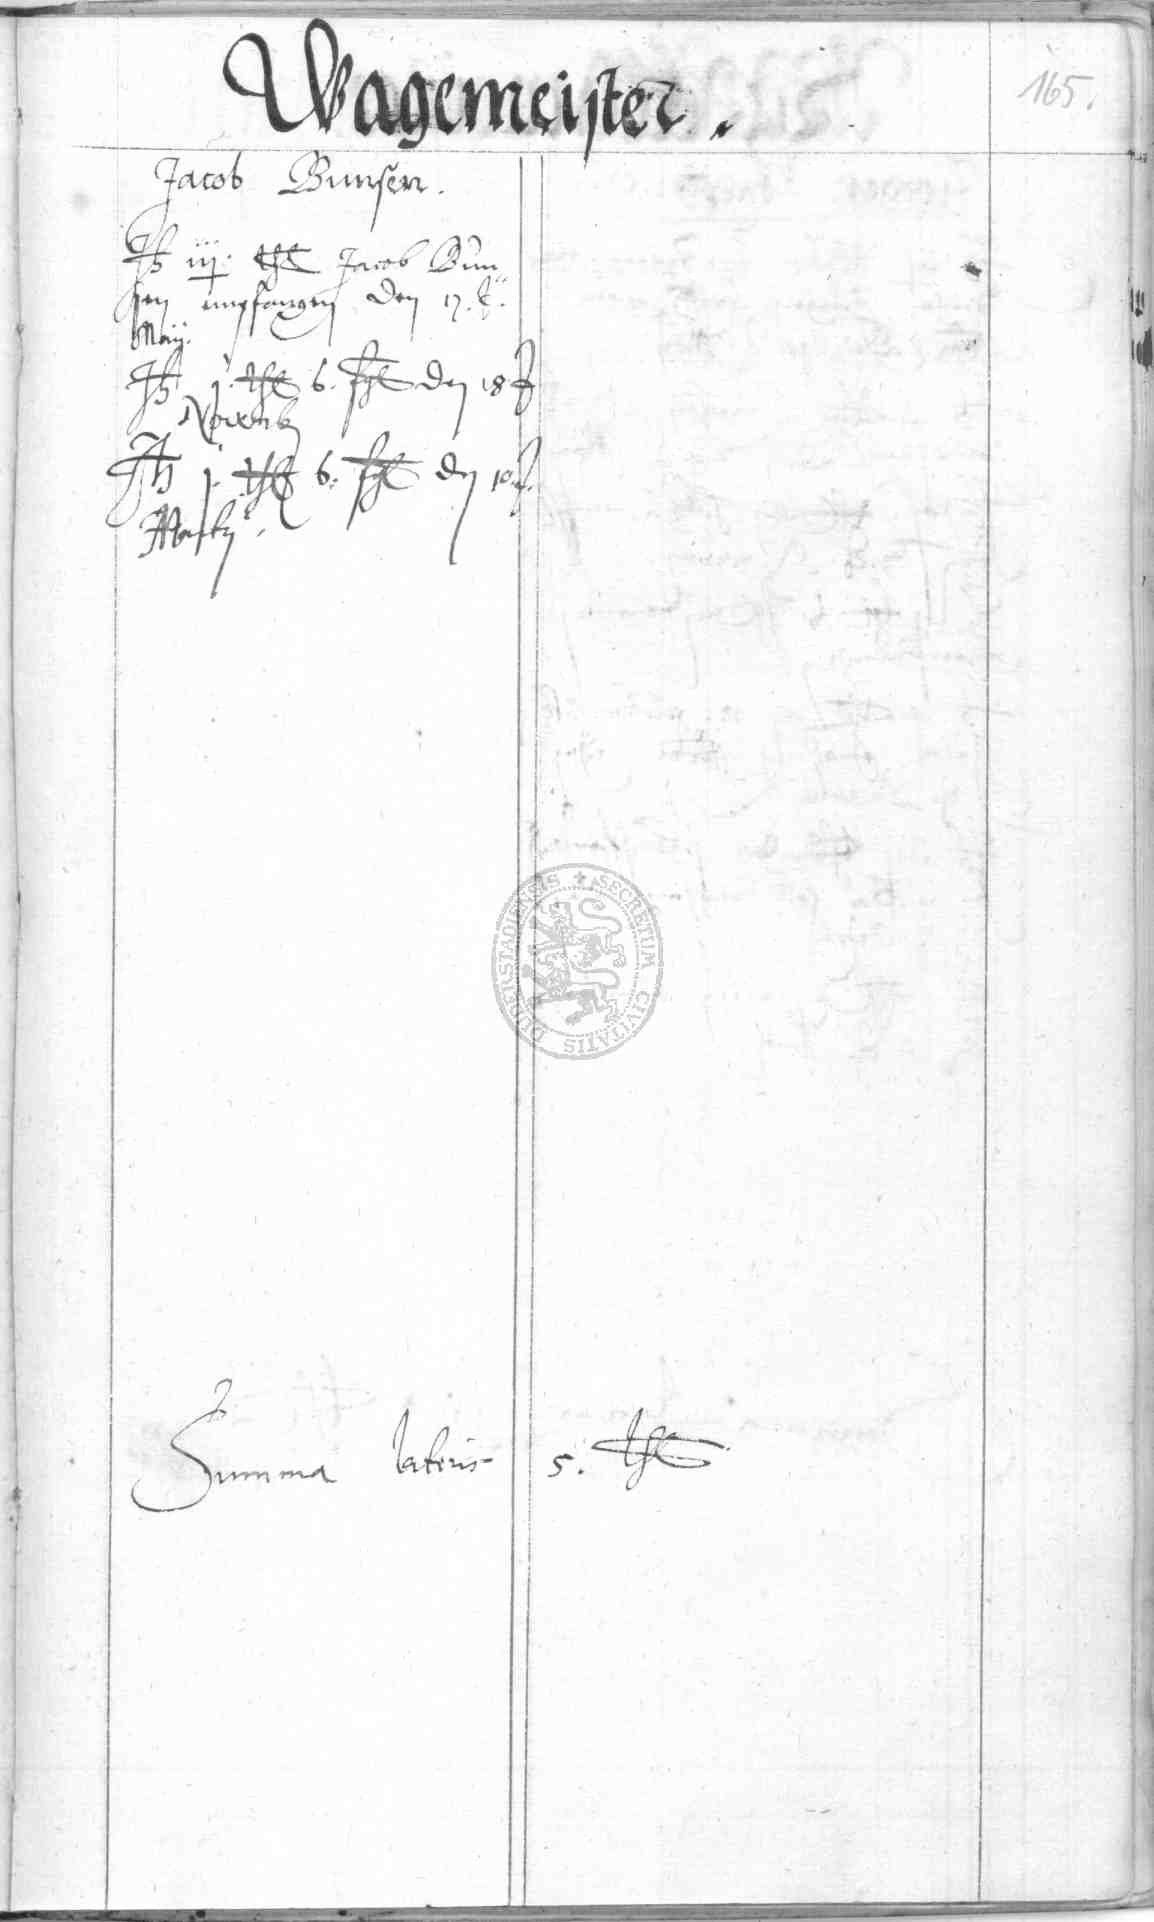 Wagemeister.
165.
Jacob Bunsen.
iij. thl Jacob Bun
sen empfangen den 17.
Maij.
j. thl 6. sgl den 18
Novemb
j. thl 6. sgl den 10.
Martij.
Summa lateris 5. thl
SECRETUM CIVITATIS DUDERSTADIENSIS